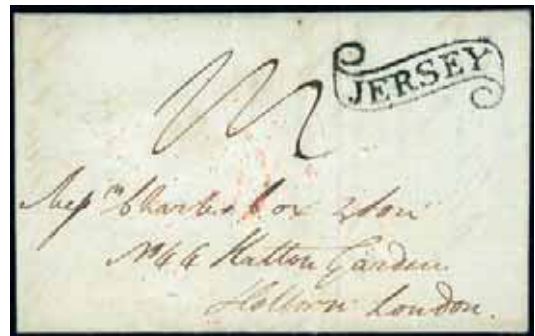 JERSEY
Mess.rs Charles Cox & Son
No 66 Hatton Garden
Holborn London.